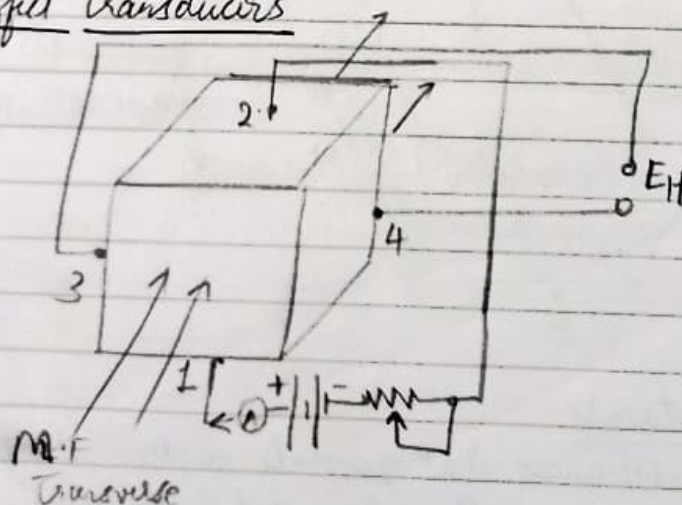 Transducers
2.
E_H
4
3
1
+ -
A
M.F
Transverse